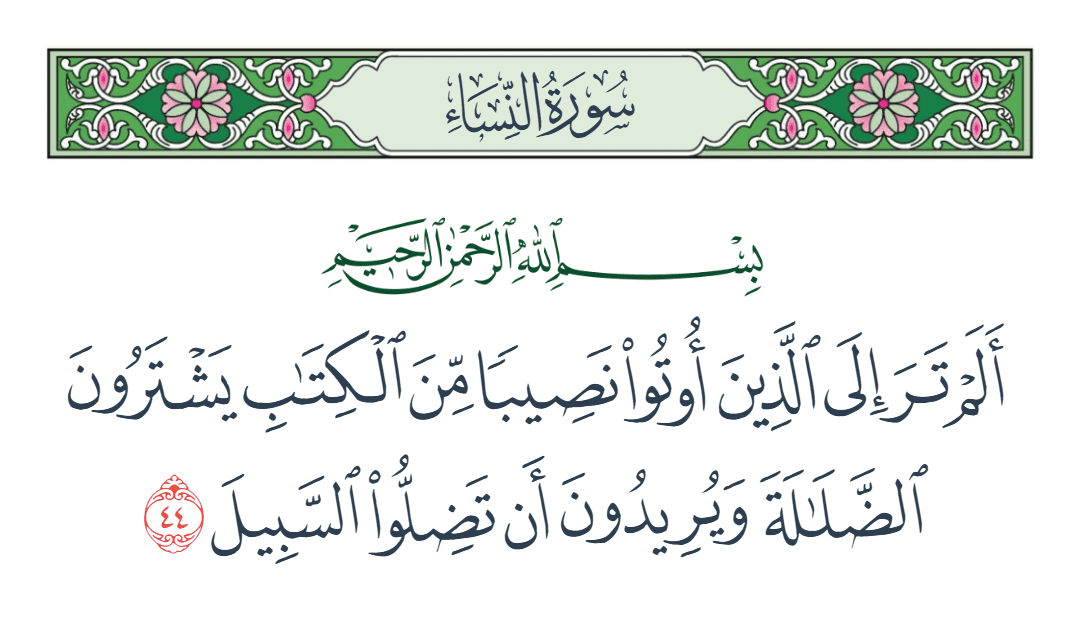 سُورَةُ النِّسَاءِ
بِسْمِ ٱللَّهِ ٱلرَّحْمَٰنِ ٱلرَّحِيمِ
أَلَمْ تَرَ إِلَى ٱلَّذِينَ أُوتُوا۟ نَصِيبًا مِّنَ ٱلْكِتَـٰبِ يَشْتَرُونَ
ٱلضَّلَـٰلَةَ وَيُرِيدُونَ أَن تَضِلُّوا۟ ٱلسَّبِيلَ ٤٤